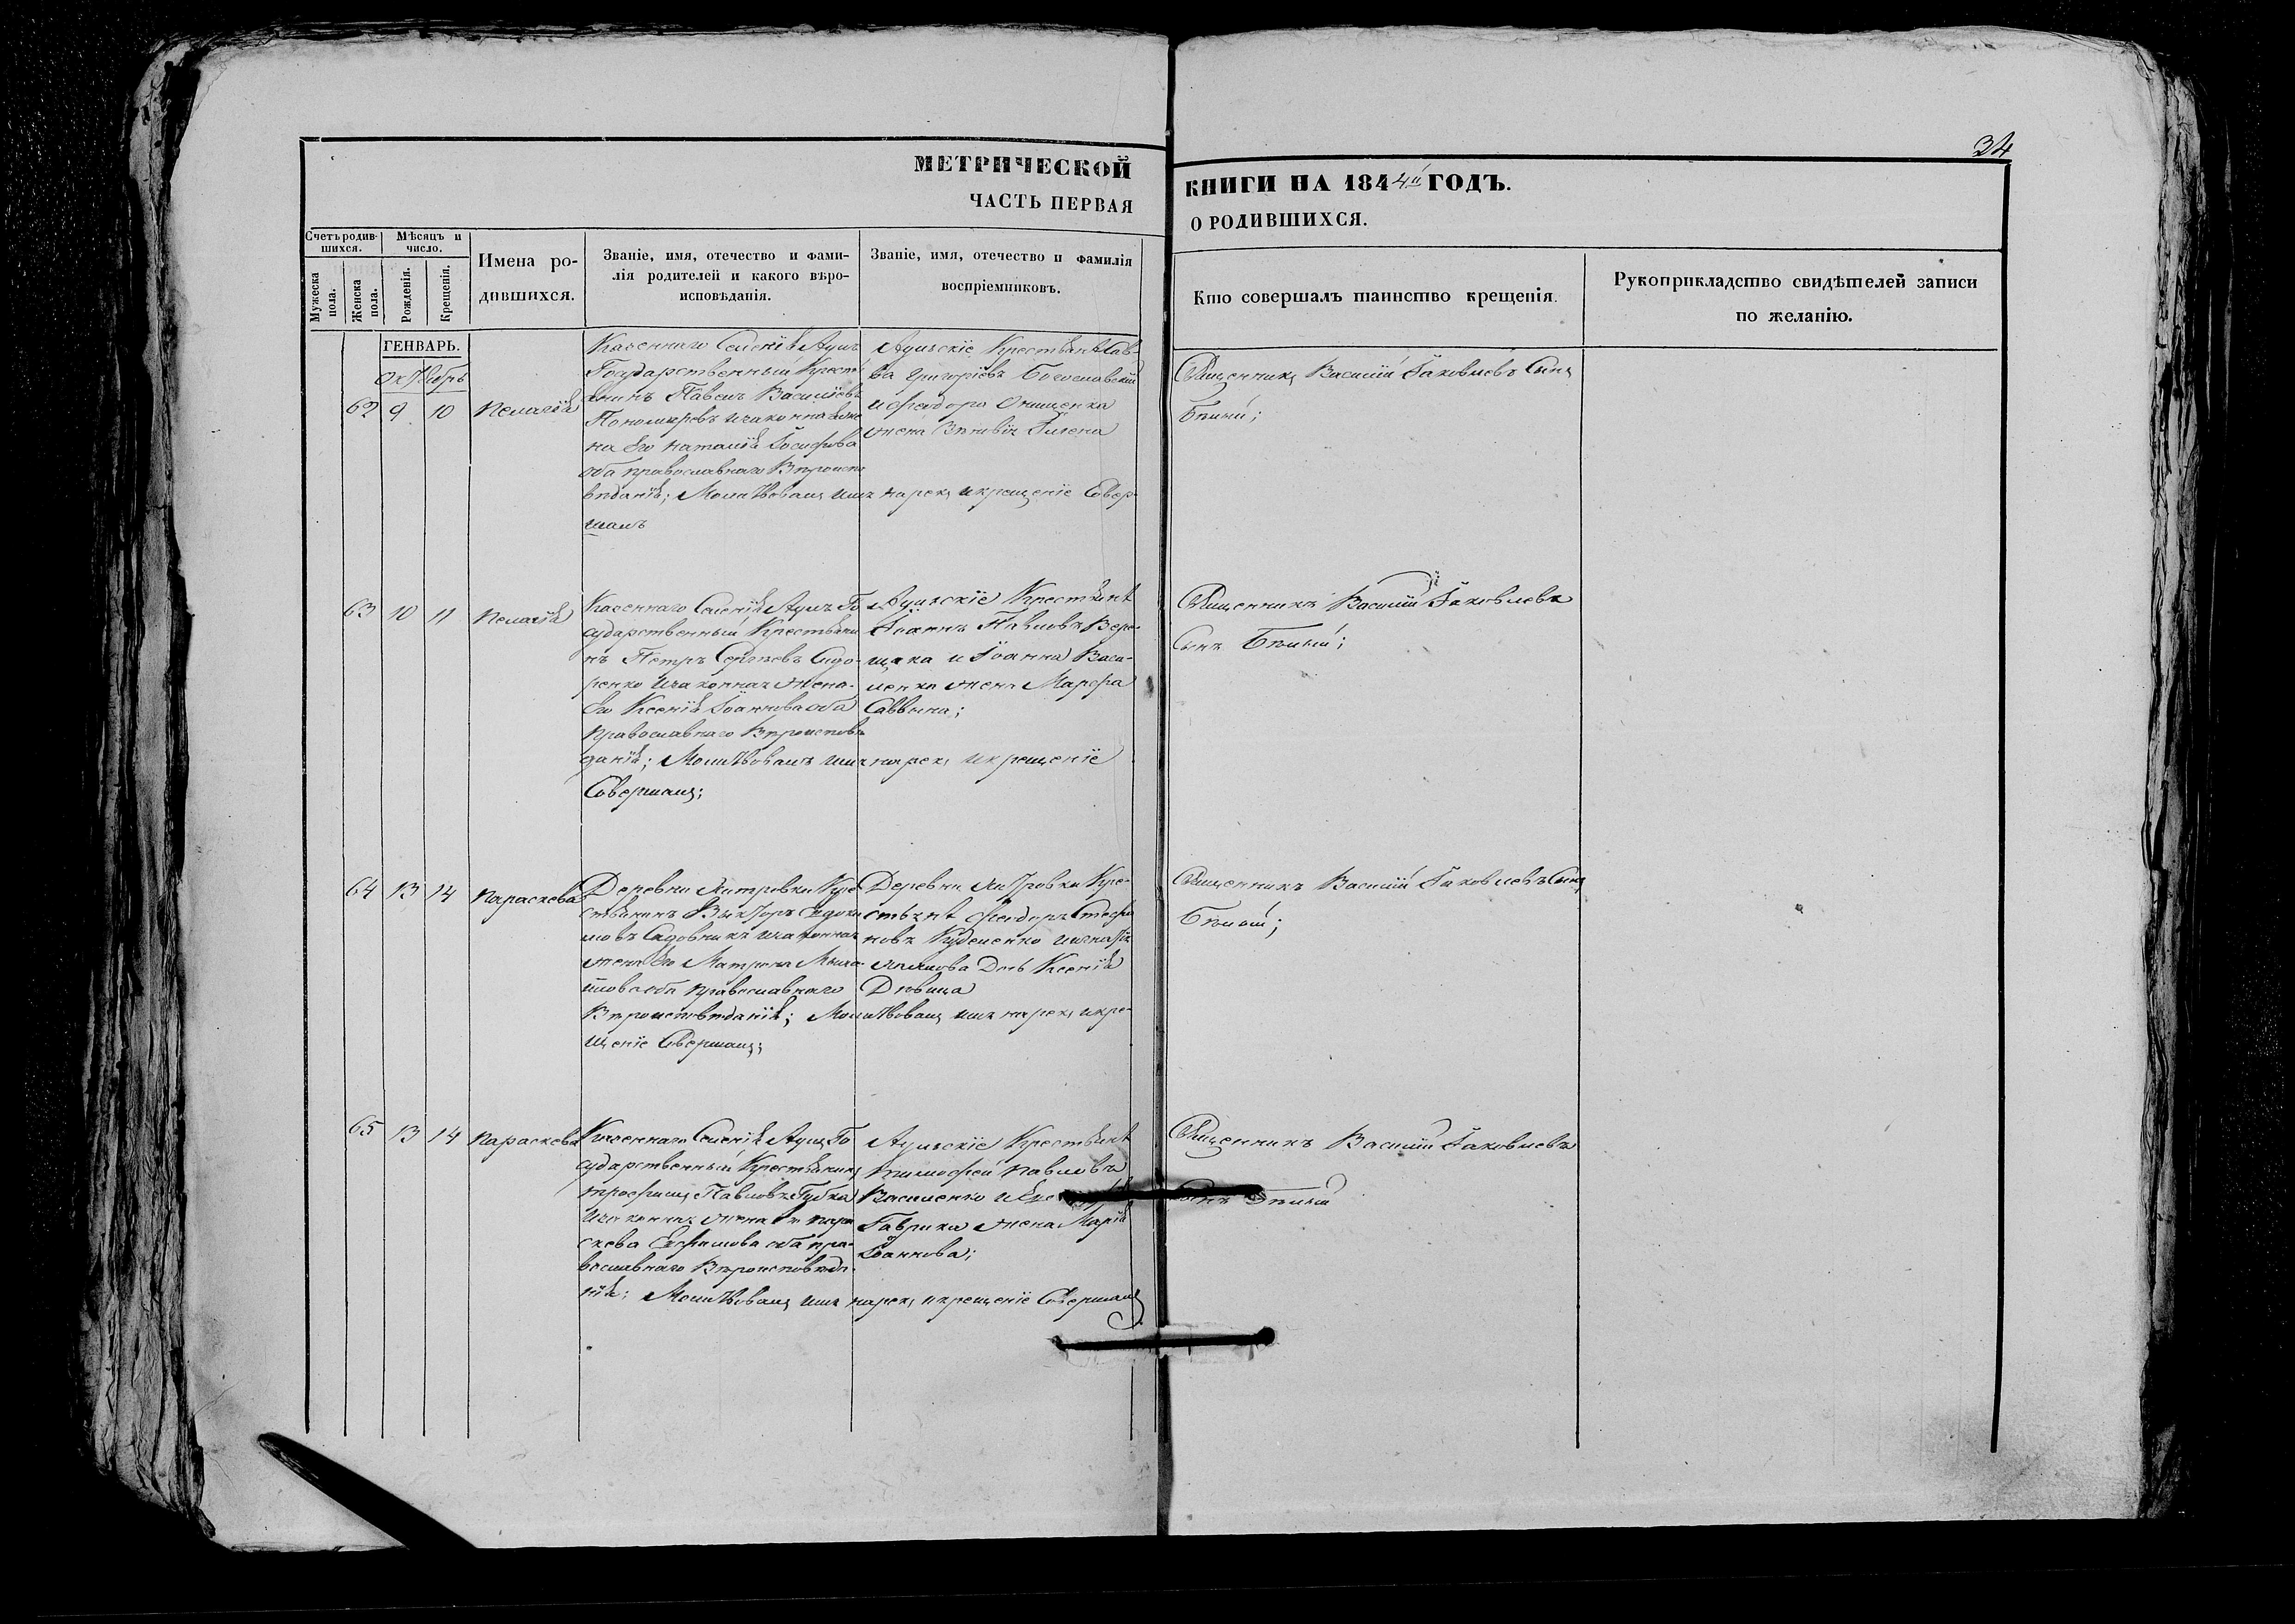 34
МЕТРИЧЕСКОЙ
КНИГИ НА 1844й ГОДЪ.
ЧАСТЬ ПЕРВАЯ
О РОДИВШИХСЯ.
Счетъ родив-
шихся.
Мужеска
пола.
Женска
пола.
Мѣсяцъ и
число.
Рожденія.
Крещенія.
Имена ро-
дившихся.
Званіе, имя, отечество и фами-
лія родителей и какого вѣро-
исповѣданія.
Званіе, имя, отечество и фамилія
воспріемниковъ.
Кто совершалъ таинство крещенія.
Рукоприкладство свидѣтелей записи
по желанію.
ГЕНВАРЬ.
Октябрь
62 9 10 Пелагія
Казеннаго Селенія
Государственный Крестья
нинъ Павелъ Васильевъ
Пономаревъ изаконная же
на Его Наталія Іосифова
оба православнаго Вѣроиспо
вѣданія; Молитвовалъ имя нарекъ икрещеніе Совер-
шалъ
Крестьяне Сав-
ва Григоріевъ Богославскій
и Феодора Онищенка
жена
Священникъ Василій Іаковлевъ Сынъ
Бѣлый;
63 10 11 Пелагія
Казеннаго Селенія Го
сударственный Крестьяни
нъ Петръ Сергѣевъ Сидо-
ренко изаконная жена
Его Ксенія Іоаннова оба
Православнаго Вѣроисповѣ
данія; Молитвовалъ имя нарекъ икрещеніе
Совершалъ;
Крестьяне
Іоаннъ Павловъ Вере-
щака и Іоанна Васи-
ленка жена Марфа
Саввина;
Священникъ Василій Іаковлевъ
Сынъ Бѣлый;
64 13 14 Параскева
Деревни Кре
стьянинъ Викторъ
Садовникъ изаконная
жена Его Матрона Миха
йлова оба православнаго
Вѣроисповѣданія; Молитвовалъ имя нарекъ икре-
щеніе Совершалъ;
Деревни Кре-
стьяне Феодоръ Стефа
новъ
Дочь Ксенія
Дѣвица
Священникъ Василій Іаковлевъ Сынъ
Бѣлый;
65 13 14 Параскева
Казеннаго Селенія Го
сударственный Крестьянинъ
Трофимъ Павловъ Губка
изаконная жена Его Пара
скева Ефимова оба пра-
вославнаго Вѣроисповѣда
нія; Молитвовалъ имя нарекъ икрещеніе Совершалъ
Крестьяне
Тимофей Павловъ
Василенко и
Гаврика жена Марія
Іоаннова;
Священникъ Василій Іаковлевъ
Сынъ Бѣлый